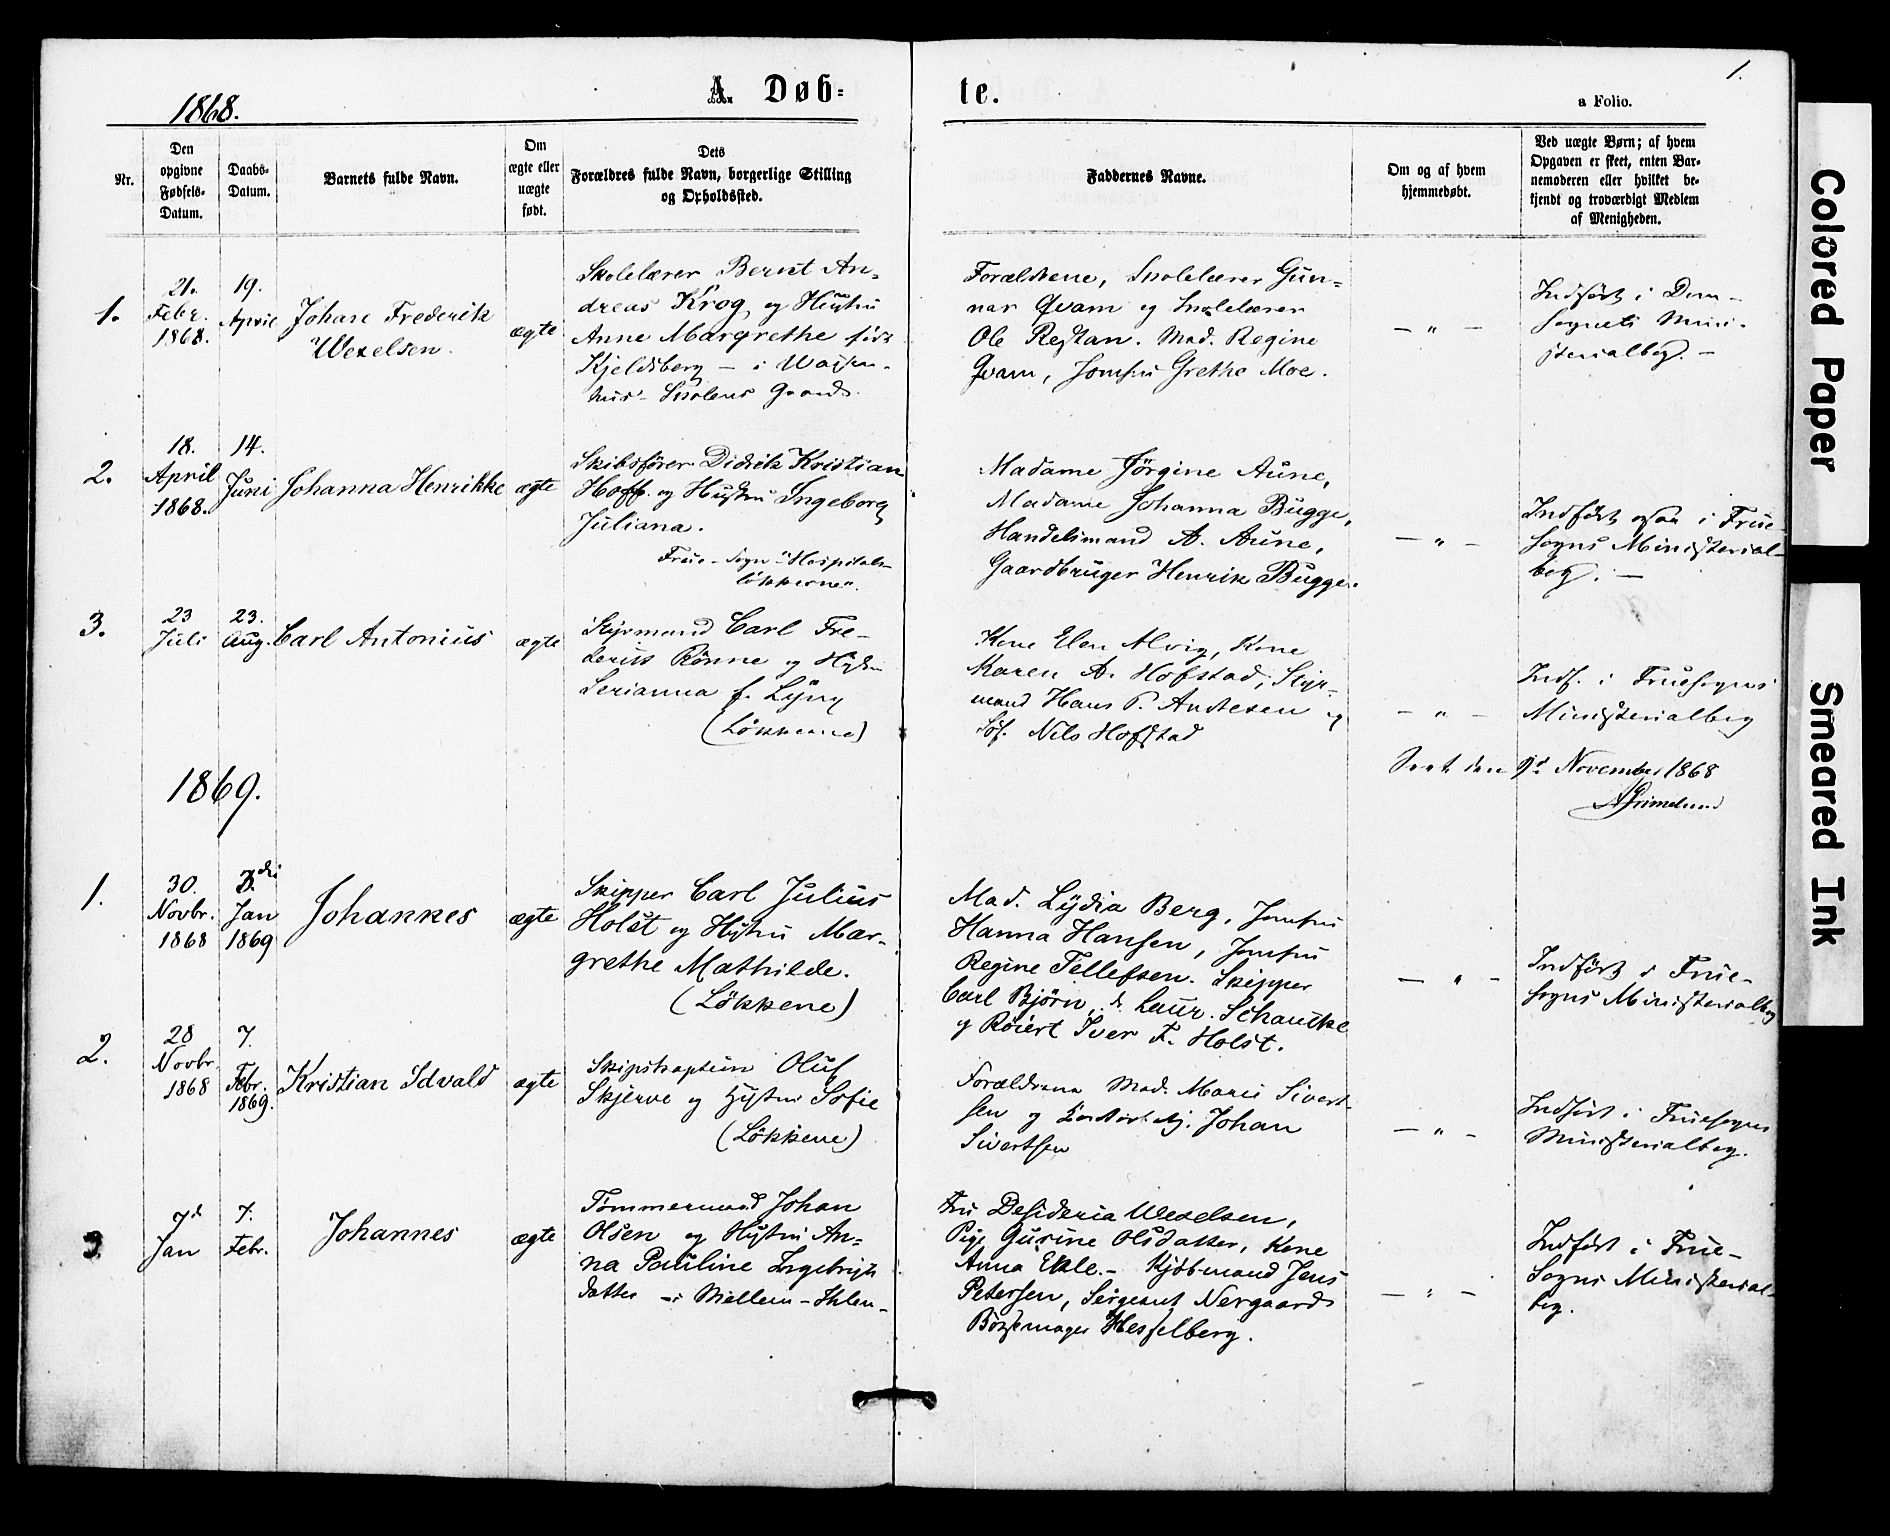 1.
1868.
A. Døb-
te.
a Folio.
Nr.
Den
opgivne
Fødsels-
Datum.
Daabs-
Datum.
Barnets fulde Navn.
Om
ægte eller
uægte
født.
Dets
Forældres fulde Navn, borgerlige Stilling
og Opholdssted.
Faddernes Navne.
Om og af hvem
hjemmedøbt.
Ved uægte Børn; af hvem
Opgaven er skeet, enten Bar-
nemoderen eller hvilket be-
kjendt og troværdigt Medlem
af Menigheden.
1.
21.
Febr.
1868.
19.
April
Johan Frederik
Wexelsen.
ægte
Skolelærer Bernt An-
dreas Krog, og Hustru
Anne Margrethe født
Kjeldsberg – i Waisen-
hus-Skolens Gaard.
Forældrene, Skolelærer Gun-
nar Qvam og Skolelærer
Ole Restan. Mad. Regine
Qvam, Jomfru Grethe Moe.
– " –
Indført i Dom-
sognets Mini-
sterialbog. –
2.
18.
April
1868.
14.
Juni
Johanna Henrikke
ægte
Skibsfører Didrik Kristian
Hoff. og Hustru Ingeborg
Juliana.
Frue-Sogn "Hospitals-
løkkerne".
Madame Jørgine Aune,
Madame Johanna Bugge,
Handelsmand A. Aune,
Gaardbruger Henrik Bugge.
– " –
Indført ogsaa i Frue-
Sogns Ministerial-
bog. –
3.
23
Juli
23.
Aug.
Carl Antonius
ægte
Styrmand Carl Fre-
derik Rønne og Hustru
Serianna f. Lyng
(Løkkerne)
Kone Elen Alvig, Kone
Maren A. Hofstad, Styr-
mand Hans P. Andresen og
Nils Hofstad
– " –
Indf. i Fruesogns
Ministerialbog
Seet den November 1868
Grimelund
1869.
1.
30.
Novbr.
1868
3die
Jan
1869
Johannes
ægte
Skipper Carl Julius
Holst og Hustru Mar-
grethe Mathilde.
(Løkkene)
Mad. Lydia Berg, Jomfru
Hanna Hansen, Jomfru
Regine Tellefsen. Skipper
Carl Bjørn, d. Laur. Schantke
og Røiert Iver F. Holst.
– " –
Indført i Frue-
sogns Ministerialbog
2.
28
Novbr.
1868
7.
Febr.
1869.
Kristian Edvald
ægte
Skipskaptein Oluf
Skjerve og Hustru Sofie
(Løkkene)
Forældrene Mad. Marie Sivert-
sen og Johan
Sivertsen
– " –
Indført i Fruesogns
Ministerialbog.
3.
7d
Jan
7.
Febr.
Johannes
ægte
Tømmermand Johan
Olsen og Hustru An-
na Pauline Ingebrigts
datter – i Mellem-Ihlen-
Fru Desideria Wexelsen,
Pige Gurine Olsdatter, Kone
Anna Ekle. – Kjøbmand Jens
Petersen, Sergeant Nergaard
Bøssemager Hesselberg.
– " –
Indført i Frue-
Sogns Ministerial-
bog.
Colored Paper
Smeared Ink